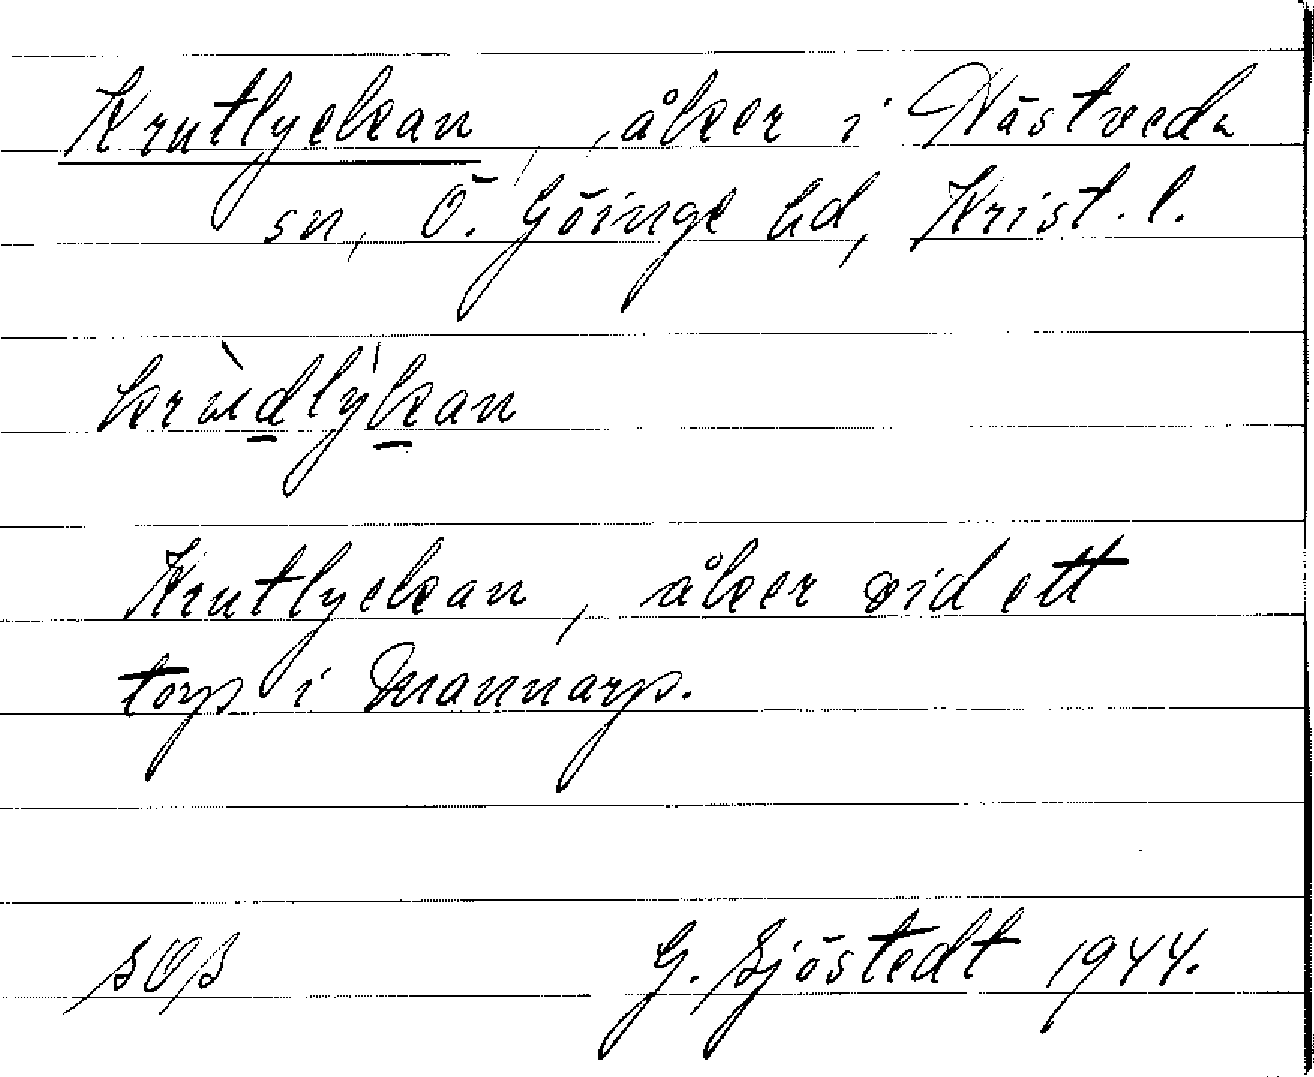 Krutlyckan, åker i Västveds
sn, Ö. Göinge hd, Krist. l.
krùdlýkan
Krutlyckan, åker vid ett
torp i Mannarp.
G. Sjöstedt 1944.